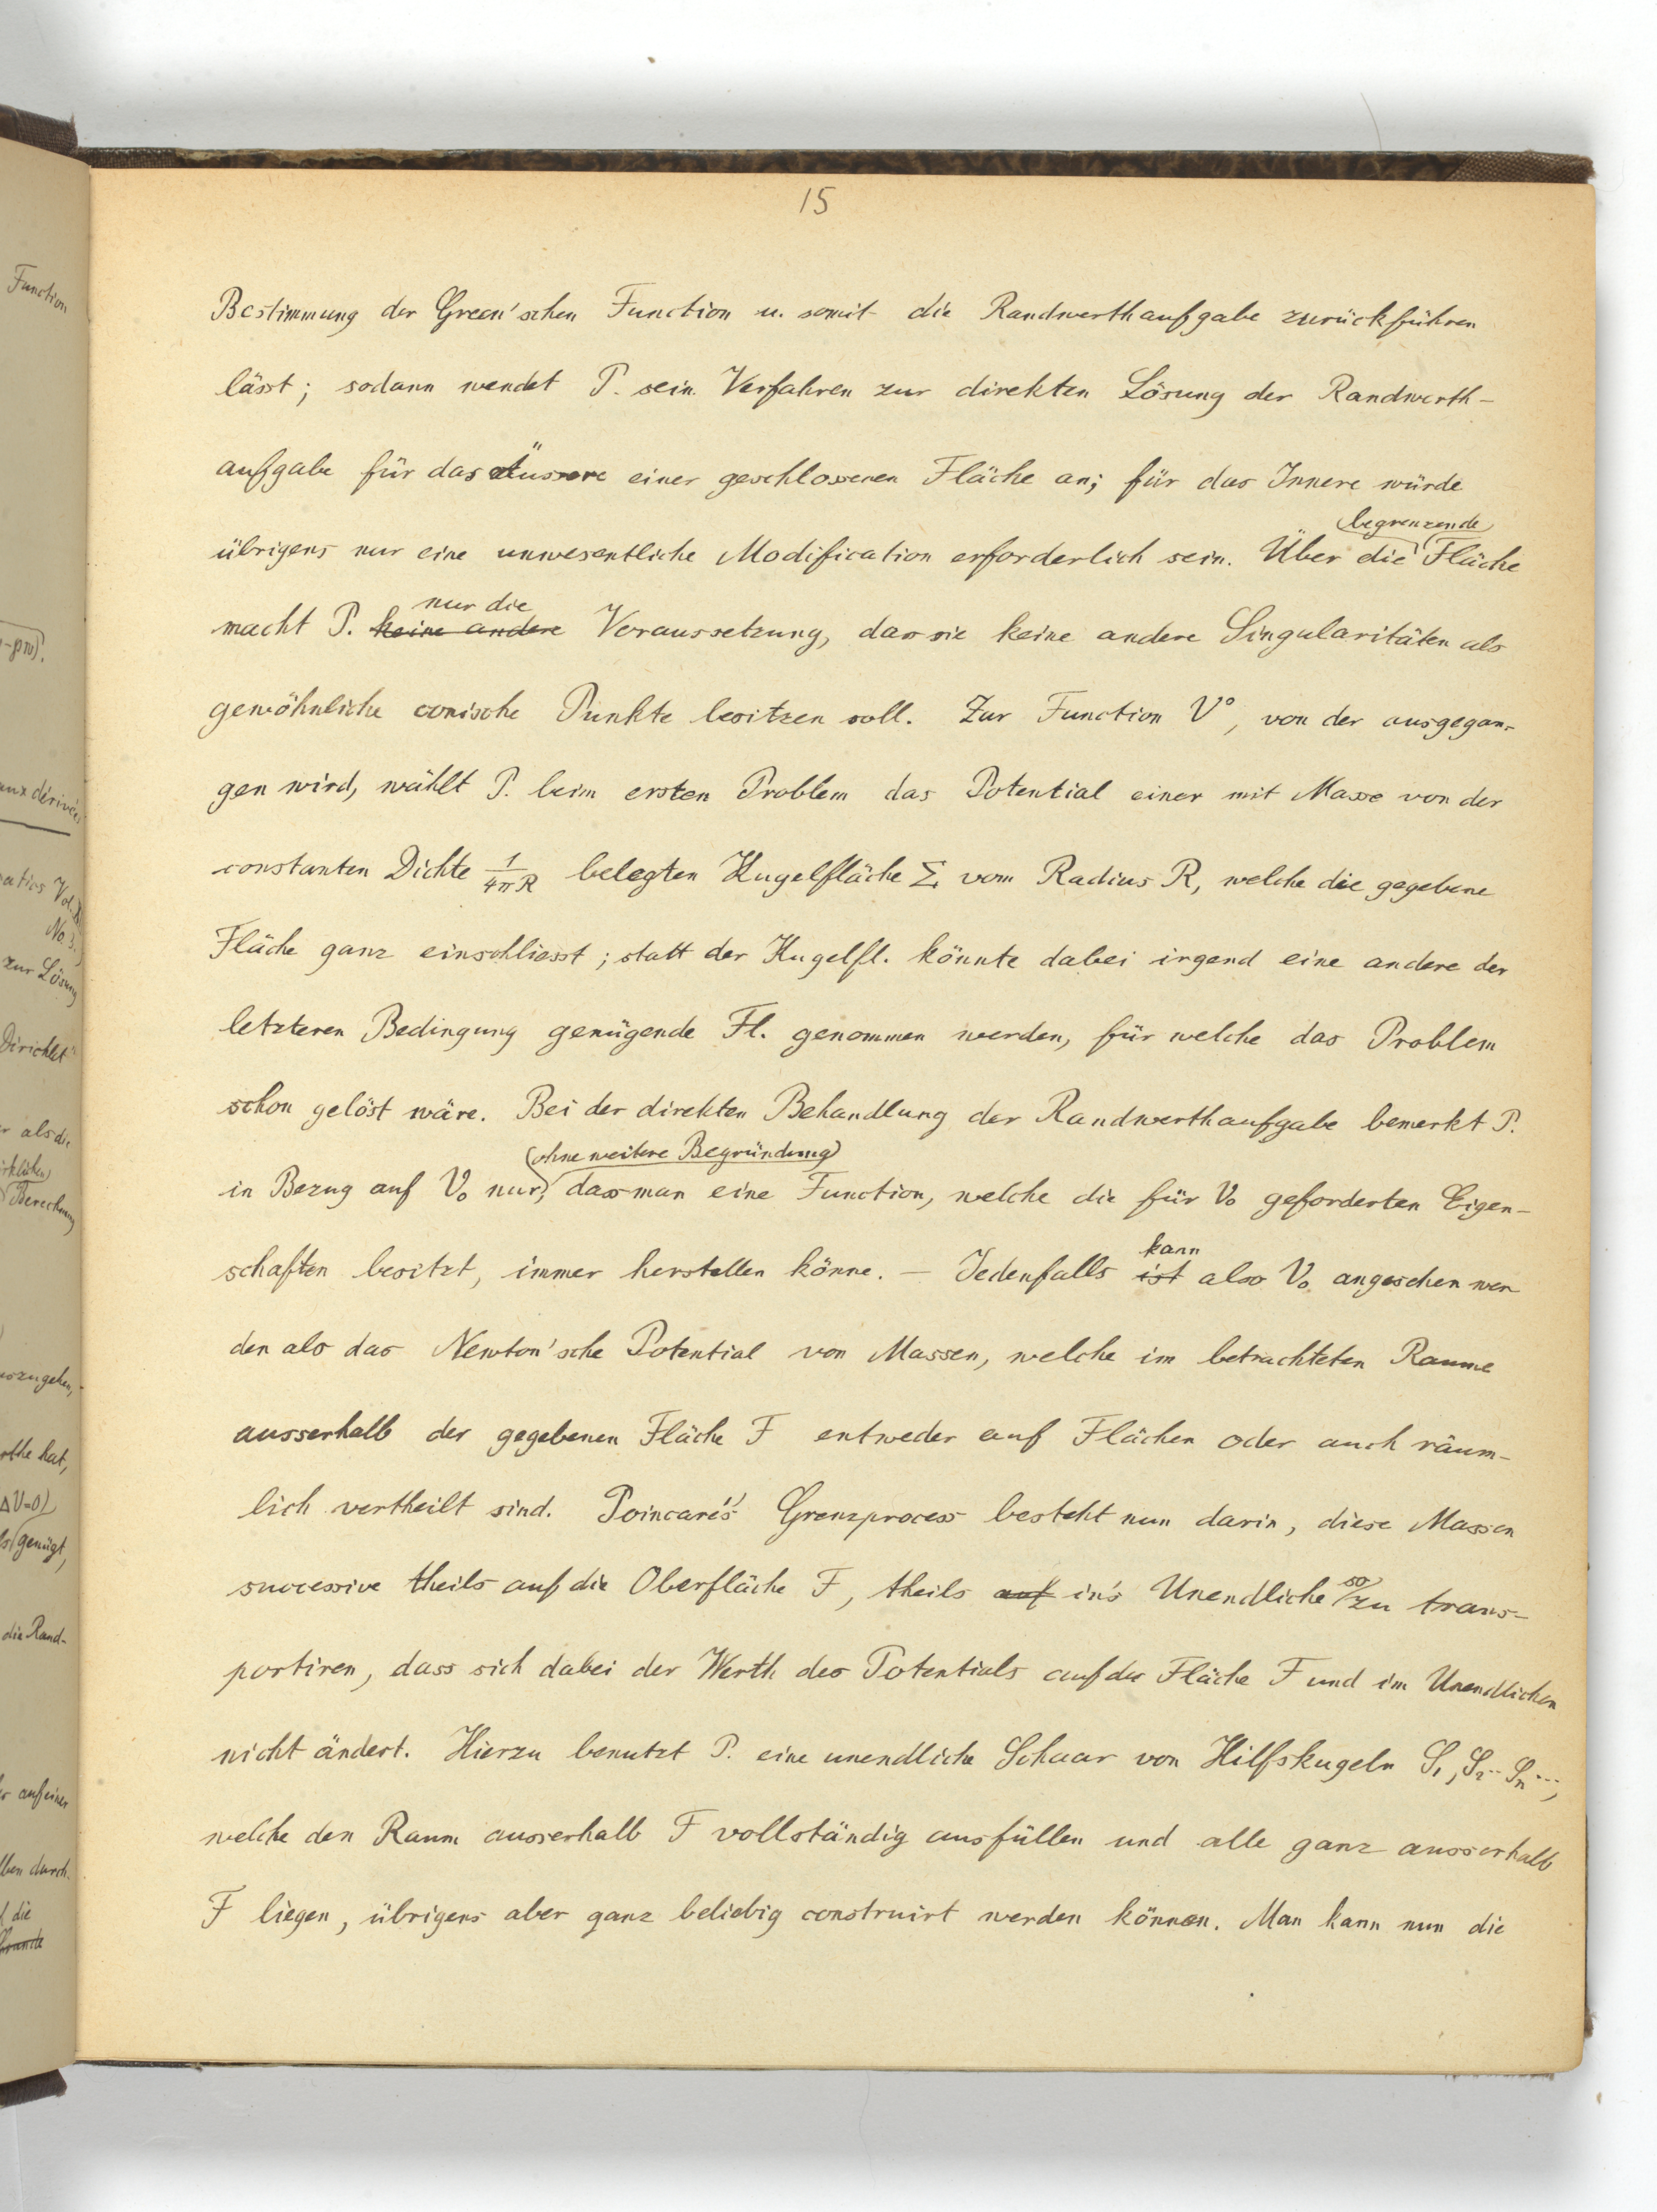 15
Bestimmung der Green'schen Function u. somit die Randwerthaufgabe zurückführen
lässt; sodann wendet P. sein Verfahren zur direkten Lösung der Randwerth-
aufgabe für das Äussere einer geschlossenen Fläche an; für das Innere würde
begrenzende
übrigens nur eine unwesentliche Modification erforderlich sein. Über die Fläche
nur die
macht P. keine andere Voraussetzung, dass sie keine andere Singularitäten als
gewöhnliche conische Punkte besitzen soll. Zur Function V°, von der ausgegan-
gen wird, wählt P. beim ersten Problem das Potential einer mit Masse von der
constanten Dichte 1/4πR belegten Kugelfläche Σ vom Radius R, welche die gegebene
Fläche ganz einschliesst; statt der Kugelfl. könnte dabei irgend eine andere der
letzteren Bedingung genügende Fl. genommen werden, für welche das Problem
schon gelöst wäre. Bei der direkten Behandlung der Randwerthaufgabe bemerkt P.
(ohne weitere Begründung)
in Bezug auf V₀ nur, dass man eine Function, welche die für V₀ geforderten Eigen-
schaften besitzt, immer herstellen könne. – Jedenfalls ist also V₀ angesehen wer
kann
den als das Newton'sche Potential von Massen, welche im betrachteten Raume
ausserhalb der gegebenen Fläche F entweder auf Flächen oder auch räum-
lich vertheilt sind. Poincaré's Grenzprocess besteht nun darin, diese Massen
successive theils auf die Oberfläche F, theils auf in's Unendliche so zu trans-
portiren, dass sich dabei der Werth des Potentials auf der Fläche F und im Unendlichen
nicht ändert. Hierzu benutzt P. eine unendliche Schaar von Hilfskugeln S₁, S₂ ·· Sₙ ···,
welche den Raum ausserhalb F vollständig ausfüllen und alle ganz ausserhalb
F liegen, übrigens aber ganz beliebig construirt werden können. Man kann nun die
Function
aux dérivées
No. 3.
zur Lösung
Dirichlet
als die
Berechnung
ΔV=0)
genügt,
die Rand-
auf einer
durch
die